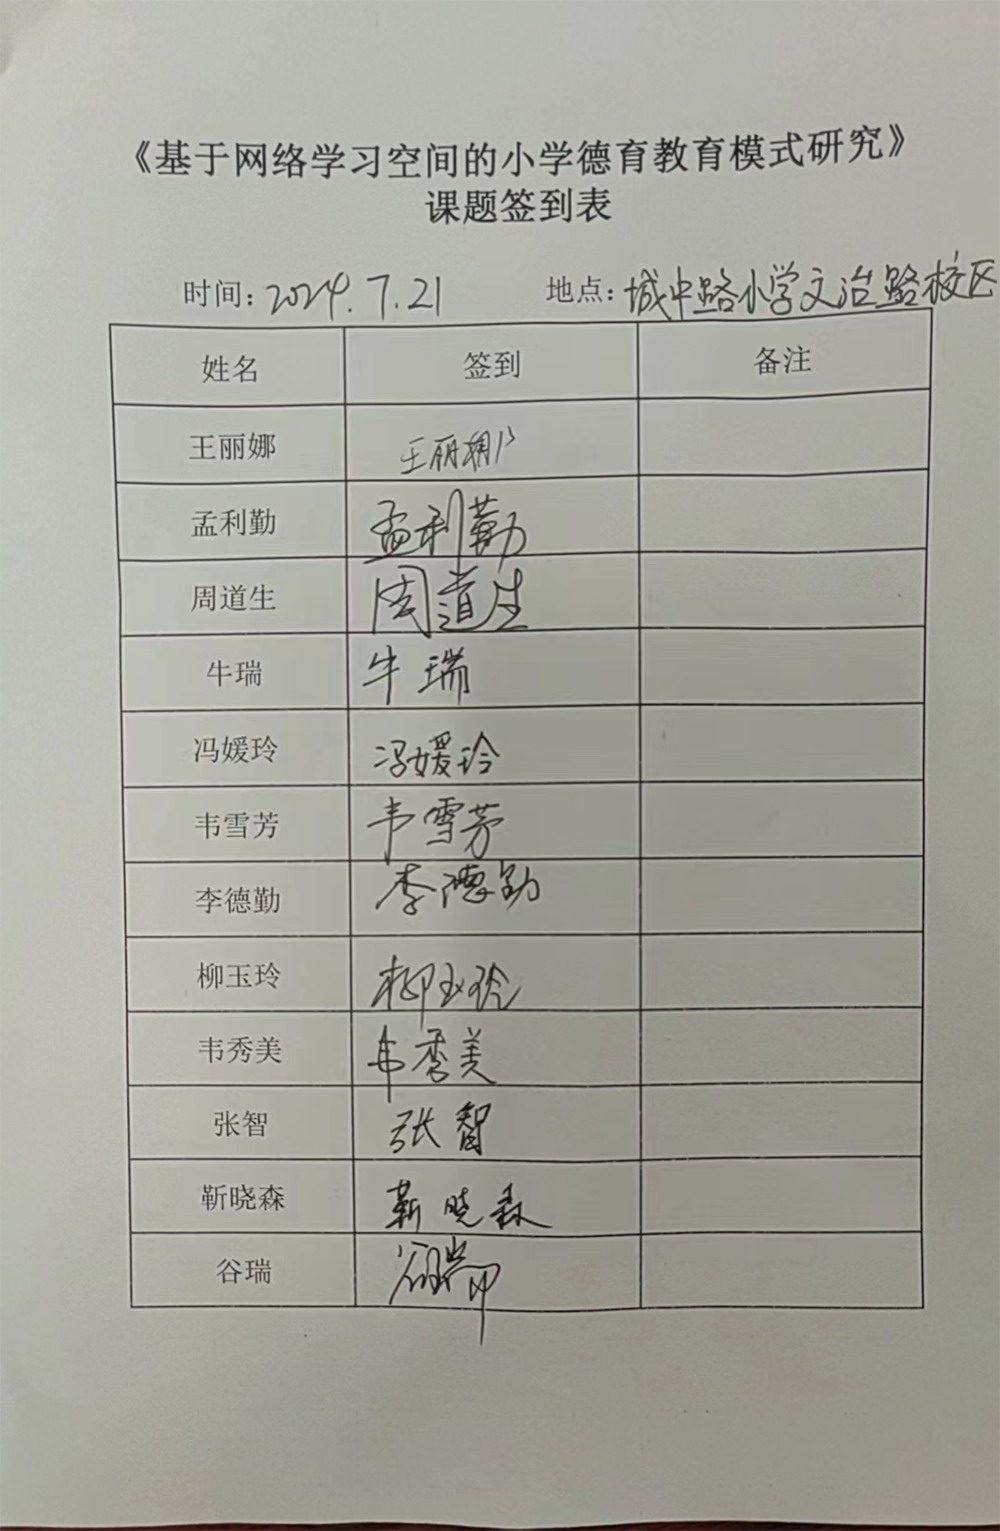 《基于网络学习空间的小学德育教育模式研究》
课题签到表
时间: 2024.7.21 地点: 城中路小学文治路校区
姓名 签到 备注
王丽娜 王丽娜
孟利勤 孟利勤
周道生 周道生
牛瑞 牛瑞
冯媛玲 冯媛玲
韦雪芳 韦雪芳
李德勤 李德勤
柳玉玲 柳玉玲
韦秀美 韦秀美
张智 张智
靳晓森 靳晓森
谷瑞 谷瑞